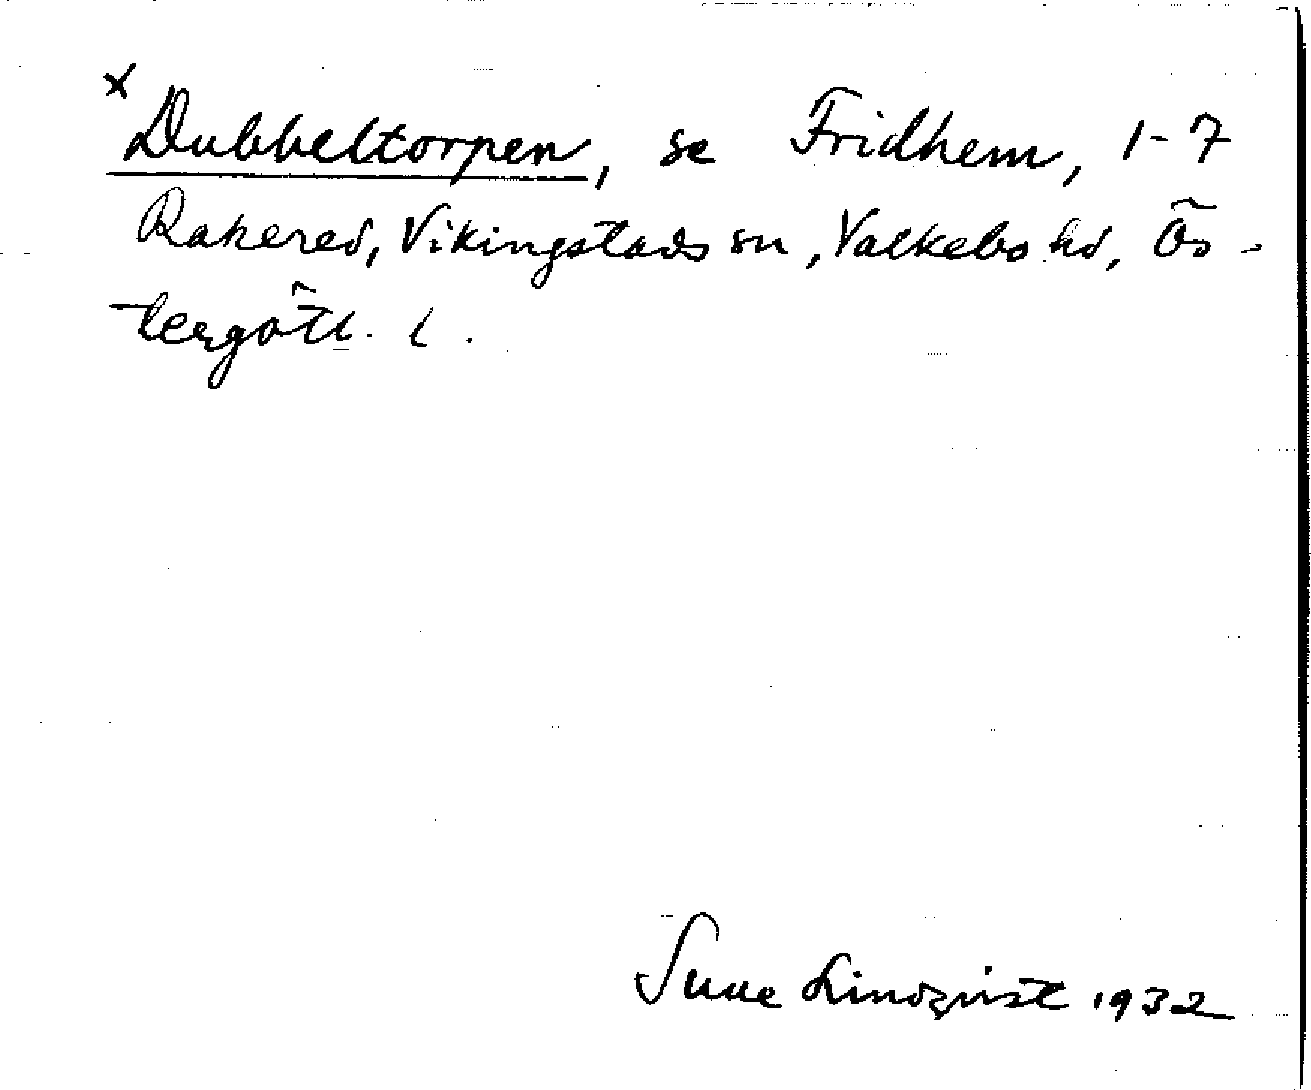 x Dubbeltorpen, se Fridhem, 1-7
Rakered, Vikingstads sn, Valkebo hd, Ös-
tergötl. l.
Sune Lindqvist 1932